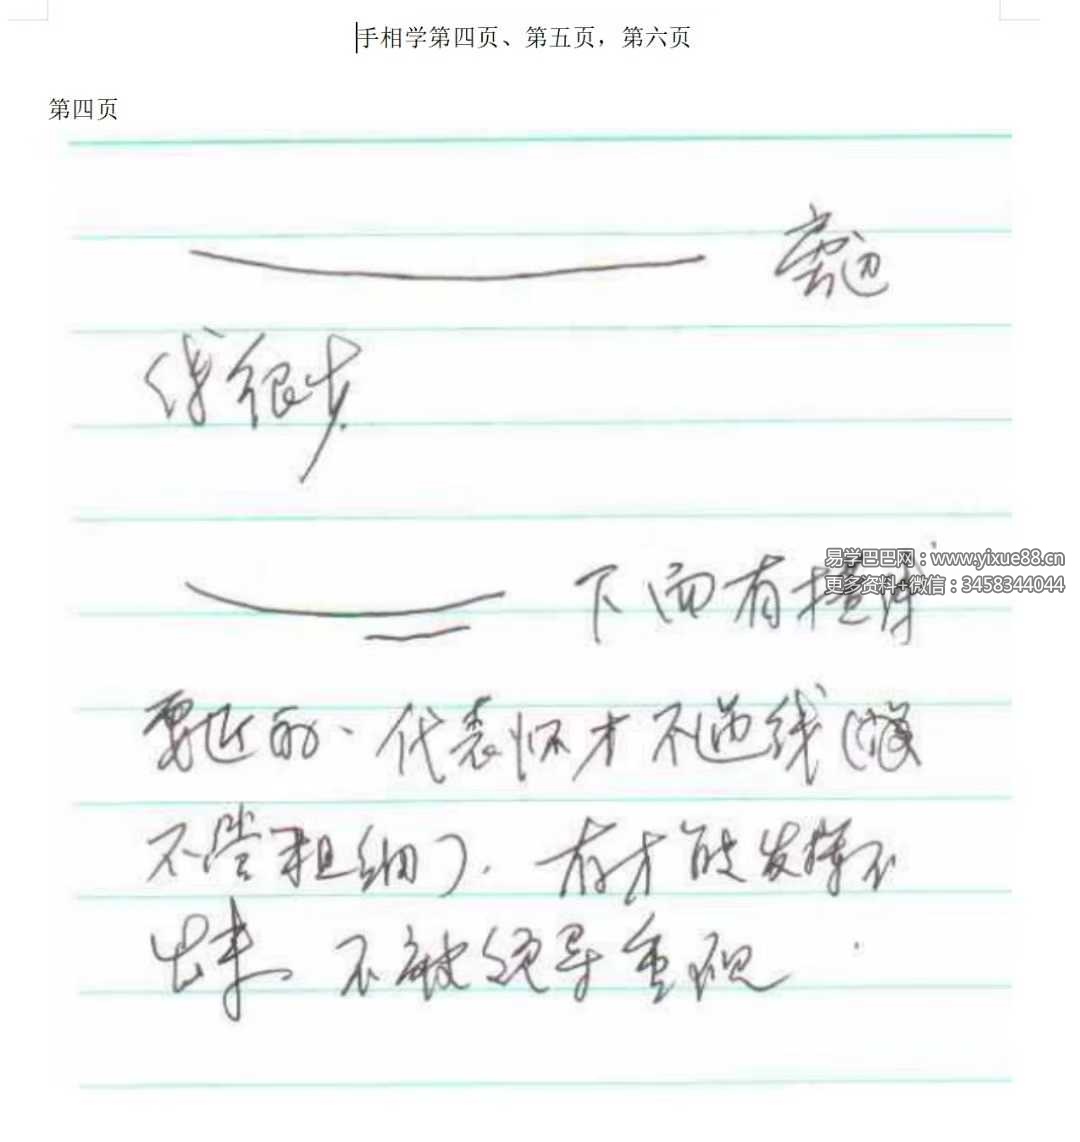 手相学第四页、第五页，第六页
第四页
线很步
易学巴巴网：www.yixue88.cn
更多资料+微信：3458344044
下面有横线
要近的、代表怀才不遇线（
不管粗细）. 有才能发挥不
出来 不被领导重视